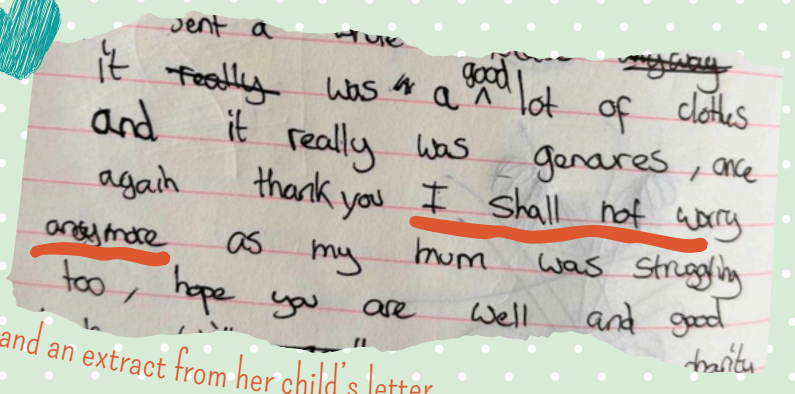 sent a
anyway
it really was a good lot of clothes
and it really was genares, once
again thank you I shall not worry
anymore as my mum was struggling
too, hope you are well and good
charity
and an extract from her child's letter